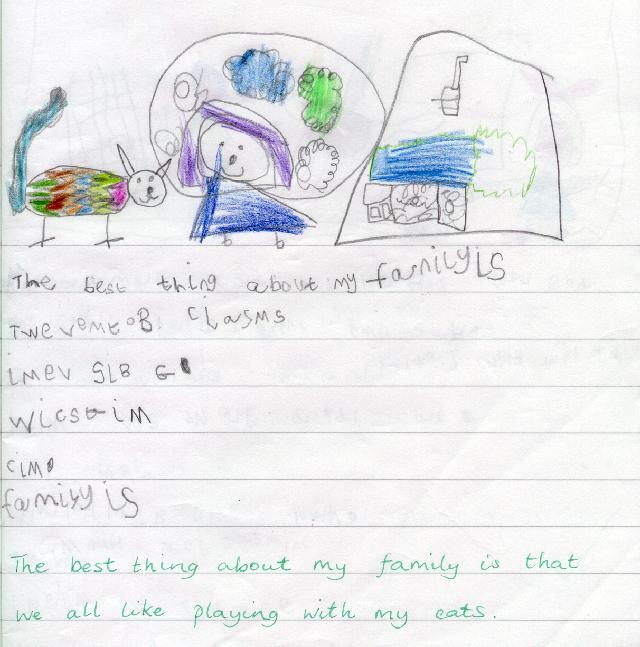 The best thing about my family is
Twevemtob clasms
imev SLB G
wicstim
cim
family is
The best thing about my family is that
we all like playing with my cats.